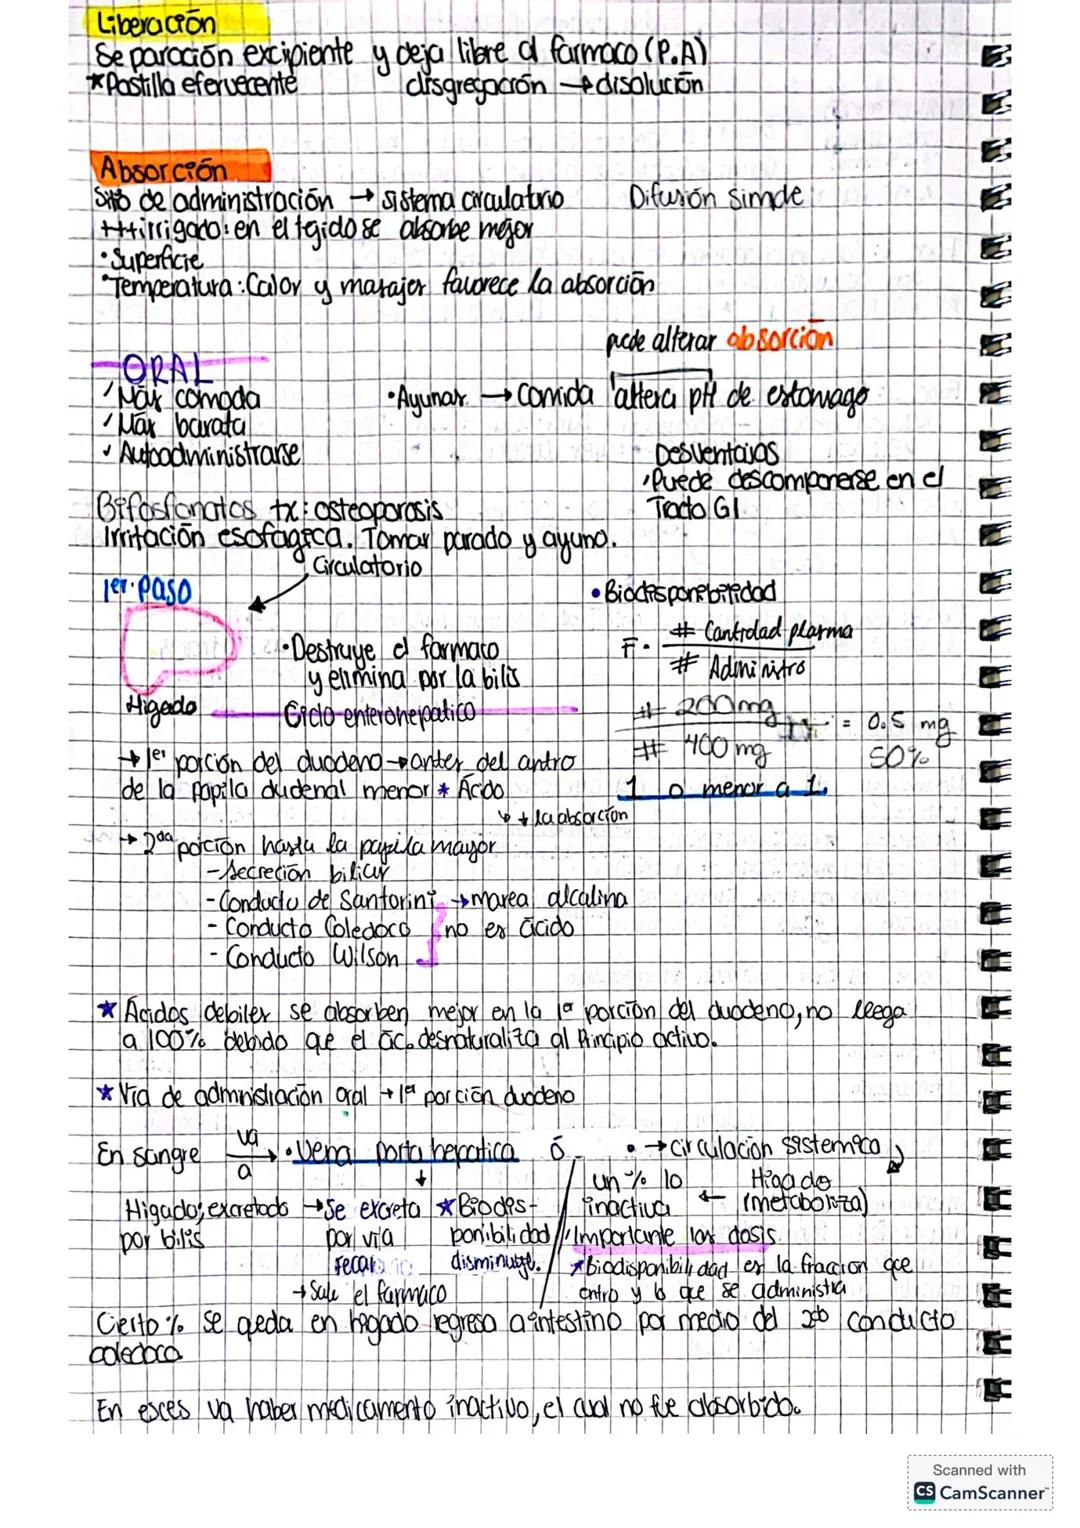 Liberación
Separación excipiente y deja libre al farmaco (P.A)
*Pastilla efervecente disgregación → disolución
Absorción
Sitio de administración → sistema circulatorio Difusión simple
++irrigado: en el tejido se absorbe mejor
• Superficie
•Temperatura: Calor y masajes favorece la absorción
puede alterar absorción
ORAL
✓ Más comoda •Ayunas → Comida altera pH de estomago
✓ Más barata
✓ Autoadministrarse Desventajas
✓Puede descomponerse en el
Tracto GI
Bifosfonatos tx: osteoporosis
Irritación esofágica. Tomar parado y ayuno.
Circulatorio
1er. Paso • Biodisponibilidad
•Destruye el farmaco F. # Cantidad plasma
y elimina por la bilis # Administro
Higado Ciclo enterohepatico
# 200mg = 0.5 mg
# 400 mg 50%
→ 1er porción del duodeno → antes del antro
de la papila dudenal menor * Ácido 1 o menor a 1.
↳ + la absorción
→ 2da porción hasta la papila mayor
- Secreción biliar
- Conducto de Santorini → marea alcalina
- Conducto Coledoco no es ácido
- Conducto Wilson
* Ácidos debiles se absorben mejor en la 1ª porción del duodeno, no llega
a 100% debido que el ác. desnaturaliza al Principio activo.
* Vía de admnistración oral → 1ª porción duodeno
En sangre va a → • Vena porta hepatica ó • → circulación sistemica
un % lo inactiva ← Higado (metaboliza)
Higado; excretado por bilis → Se excreta por vía fecal
* Biodisponibilidad disminuye.
Importante las dosis
*biodisponibilidad es la fraccion que
entro y lo que se administra
→ Sale el farmaco
Cierto % se queda en hígado regresa a intestino por medio del conducto
coledoco
En esces va haber medicamento inactivo, el cual no fue absorbido.
Scanned with
CS CamScanner